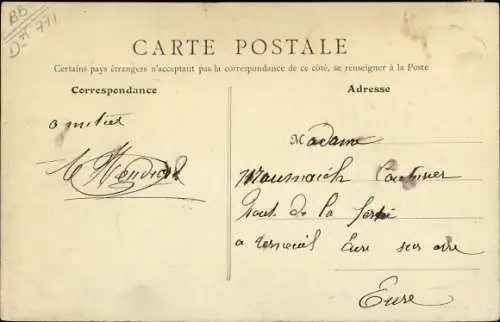 BB
CARTE POSTALE
Certains pays étrangers n'acceptant pas la correspondance de ce côté, se renseigner à la Poste
Correspondance
Adresse
amities
Madame
Rout de la
a verneuil Eure sur avre
Eure